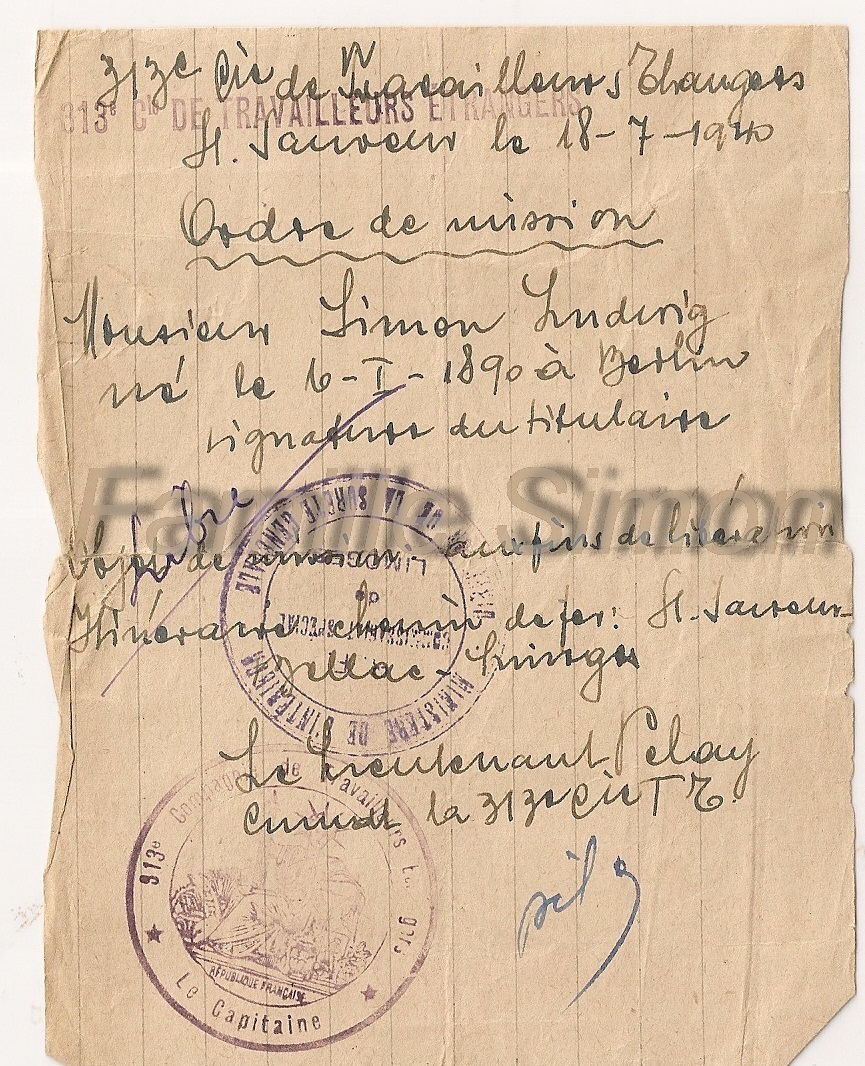 313e Cie de Travailleurs Etrangers
313e Cie DE TRAVAILLEURS ETRANGERS
St. Sauveur le 18-7-1940
Ordre de mission
Monsieur Simon Ludwig
né le 6-I-1890 à Berlin
signature du titulaire
Famille Simon
Objet de mission aux fins de libération
Itinéraire chemin de fer: St. Sauveur-
Bellac-Limoges
MINISTERE DE L'INTERIEUR
DE LA SURETE GENERALE
COMMISSARIAT SPECIAL
de
LIMOGES
Le Lieutenant Pelay
Cmmdt la 313e Cie T E.
313e Compagnie de Travailleurs Etrangers
REPUBLIQUE FRANÇAISE
Le Capitaine